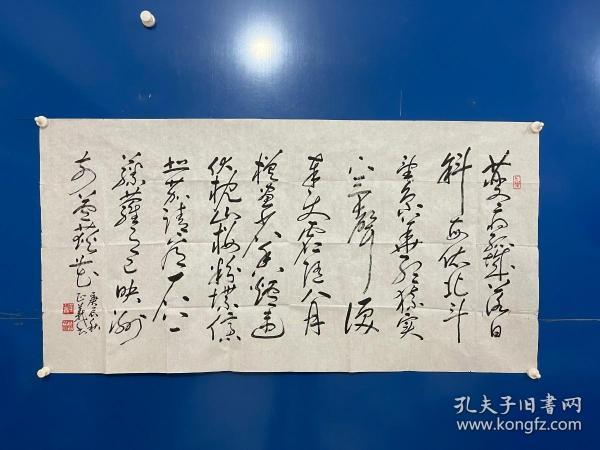 夔府孤城落日
斜每依北斗
望京华听猿实
下三声泪
奉使虚随八月
槎画省香炉违
伏枕山楼粉堞隐
悲笳请看石上
藤萝月已映洲
前芦荻花
庚辰秋
正义书
孔夫子旧书网
www.kongfz.com